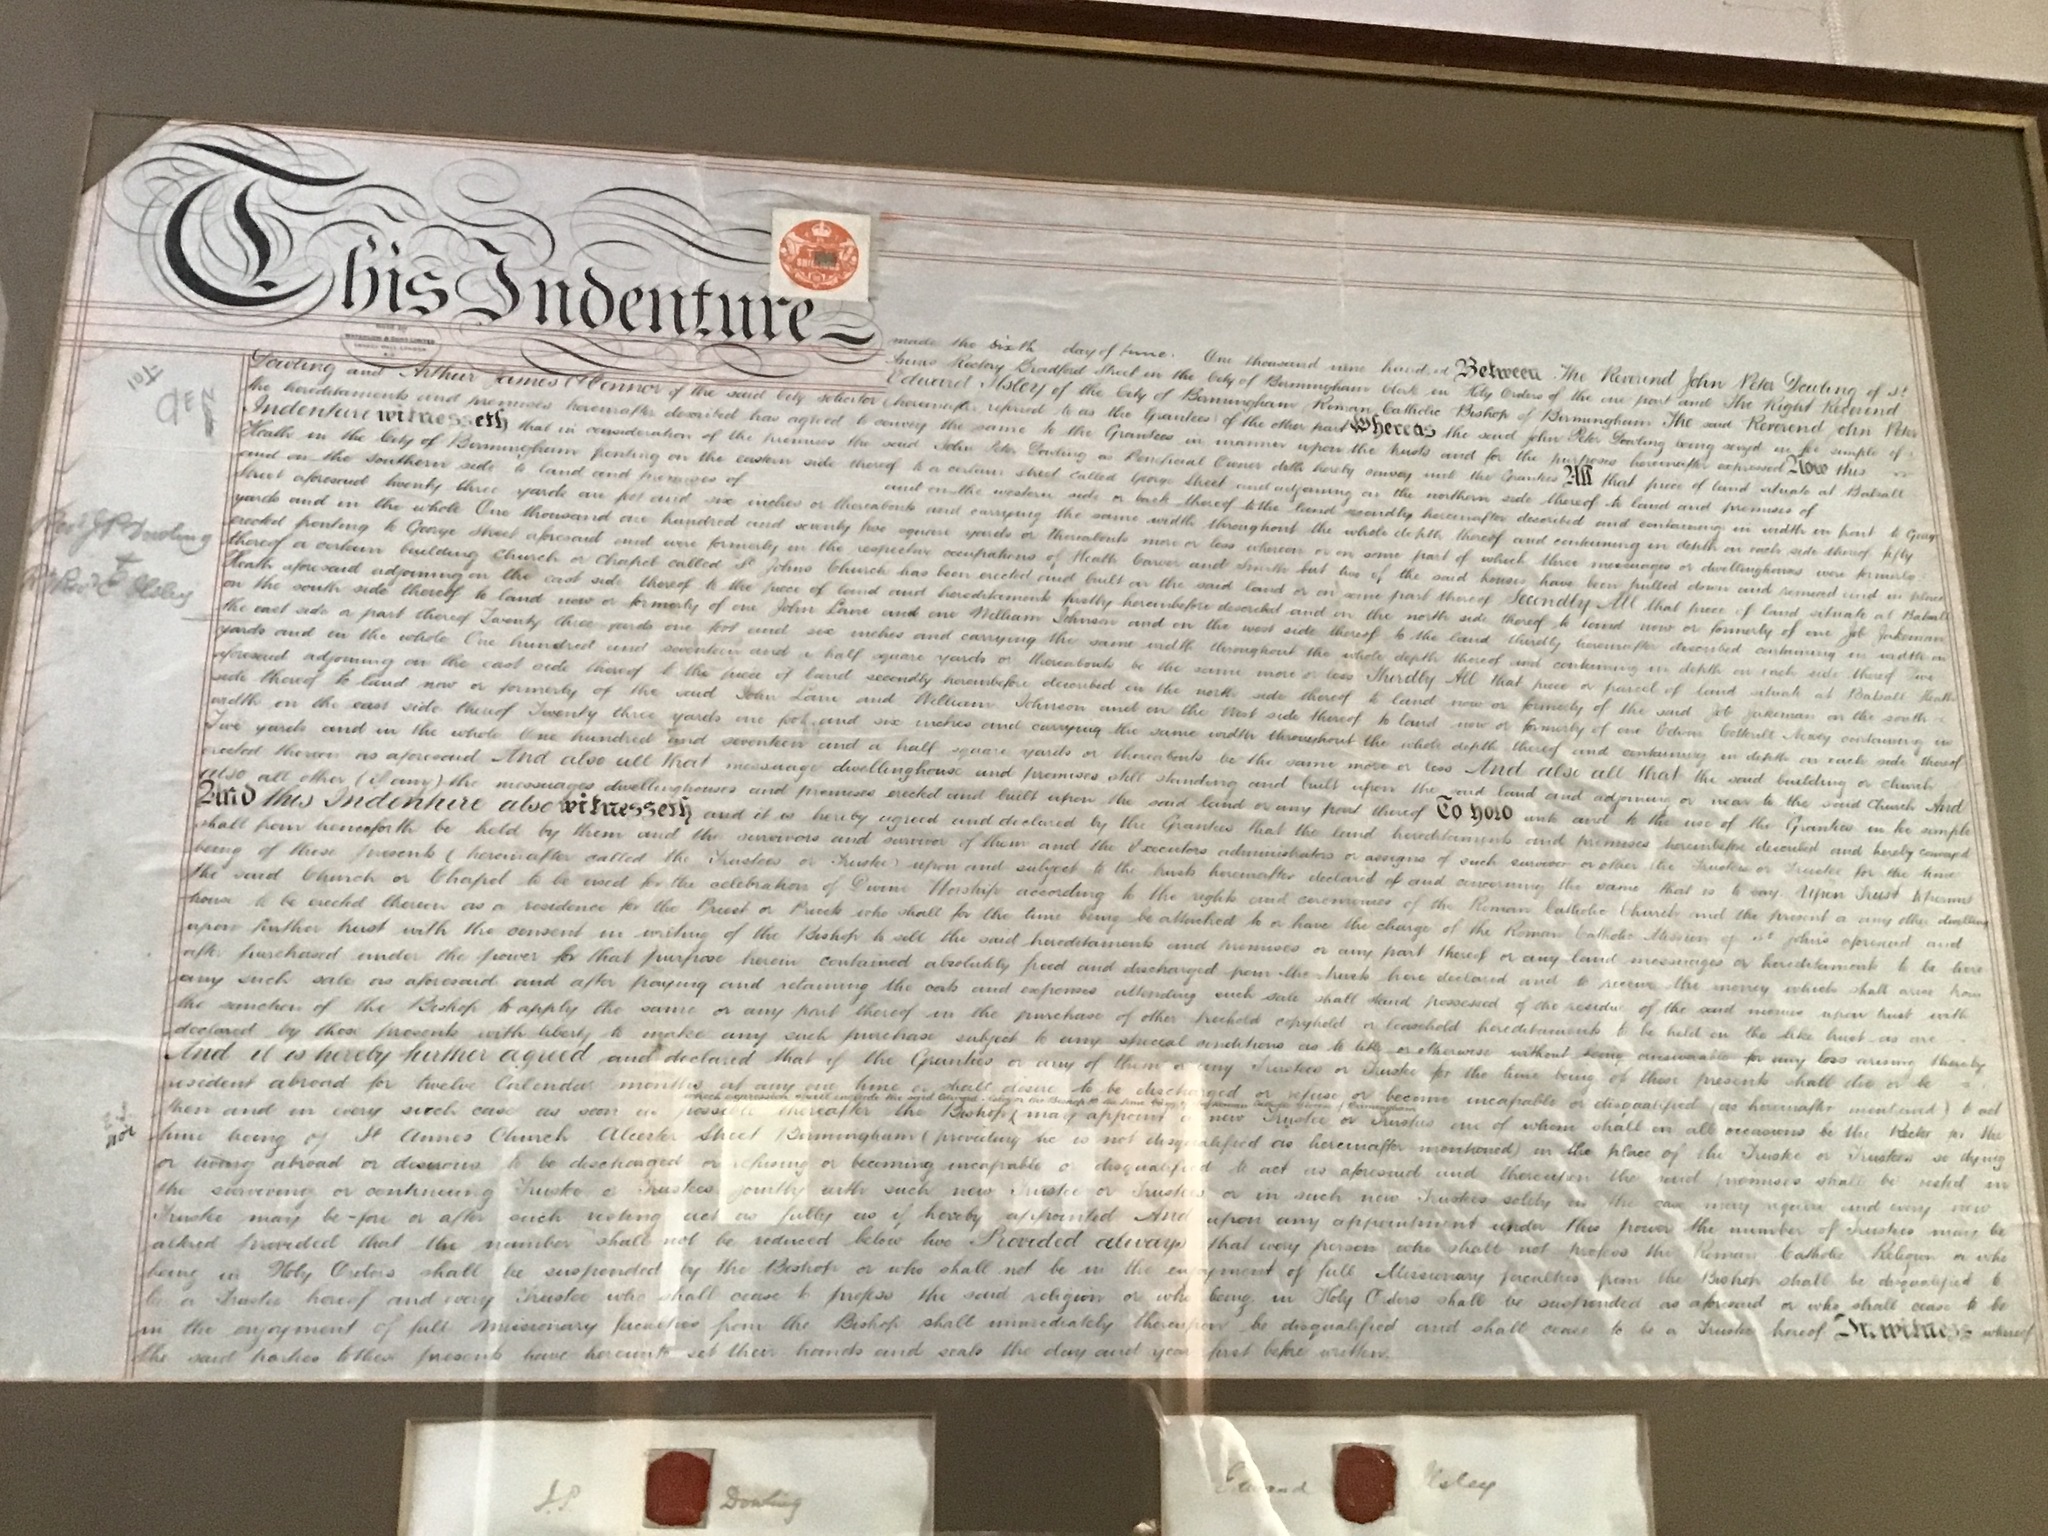 This Indenture
SHILLINGS
WATERLOW & SONS LIMITED
made the sixth day of June One thousand nine hundred Between The Reverend John Peter Dowling of St
Annes Rectory Bradford Street in the City of Birmingham Clerk in Holy Orders of the one part and The Right Reverend
Edward Ilsley of the City of Birmingham Roman Catholic Bishop of Birmingham The said Reverend John Peter
Dowling and Arthur James O'Connor of the said City Solicitor (hereinafter referred to as the Grantees) of the other part Whereas the said John Peter Dowling being seized in fee simple of
the hereditaments and premises hereinafter described has agreed to convey the same to the Grantees in manner upon the trusts and for the purposes hereinafter expressed Now this
Indenture witnesseth that in consideration of the premises the said John Peter Dowling as Beneficial Owner doth hereby convey unto the Grantees All that piece of land situate at Balsall
Heath in the City of Birmingham fronting on the eastern side thereof to a certain street called George Street and adjoining on the northern side thereof to land and premises of
and on the southern side to land and premises of and on the western side or back thereof to the land secondly hereinafter described and containing in width in front to George
Street aforesaid twenty three yards one foot and six inches or thereabouts and carrying the same width throughout the whole depth thereof and containing in depth on each side thereof fifty
yards and in the whole One thousand one hundred and seventy five square yards or thereabouts more or less whereon or on some part of which three messuages or dwellinghouses were formerly
erected fronting to George Street aforesaid and were formerly in the respective occupations of Heath Carver and Smith but two of the said houses have been pulled down and removed and in place
thereof a certain building Church or Chapel called St Johns Church has been erected and built on the said land or on some part thereof Secondly All that piece of land situate at Balsall
Heath aforesaid adjoining on the east side thereof to the piece of land and hereditaments firstly hereinbefore described and on the north side thereof to land now or formerly of one Job Jakeman
on the south side thereof to land now or formerly of one John Lane and one William Johnson and on the west side thereof to the land thirdly hereinafter described containing in width on
the east side a part thereof Twenty three yards one foot and six inches and carrying the same width throughout the whole depth thereof and containing in depth on each side thereof Five
yards and in the whole One hundred and seventeen and a half square yards or thereabouts be the same more or less Thirdly All that piece or parcel of land situate at Balsall Heath
aforesaid adjoining on the east side thereof to the piece of land secondly hereinbefore described on the north side thereof to land now or formerly of the said Job Jakeman on the south
side thereof to land now or formerly of the said John Lane and William Johnson and on the West side thereof to land now or formerly of one Edwin Cotterill containing in
width on the east side thereof Twenty three yards one foot and six inches and carrying the same width throughout the whole depth thereof and containing in depth on each side thereof
Five yards and in the whole One hundred and seventeen and a half square yards or thereabouts be the same more or less And also all that the said building or church
erected thereon as aforesaid And also all that messuage dwellinghouse and premises still standing and built upon the said land and adjoining or near to the said Church And
also all other (if any) the messuages dwellinghouses and premises erected and built upon the said land or any part thereof To hold unto and to the use of the Grantees in fee simple
And this Indenture also witnesseth and it is hereby agreed and declared by the Grantees that the land hereditaments and premises hereinbefore described and hereby conveyed
shall from henceforth be held by them and the survivors and survivor of them and the Executors administrators or assigns of such survivor or other the Trustees or Trustee for the time
being of these presents (hereinafter called the Trustees or Trustee) upon and subject to the trusts hereinafter declared of and concerning the same that is to say Upon Trust to permit
the said Church or Chapel to be used for the celebration of Divine Worship according to the rights and ceremonies of the Roman Catholic Church and the present or any other dwelling
house to be erected thereon as a residence for the Priest or Priests who shall for the time being be attached to or have the charge of the Roman Catholic Mission of St John's aforesaid and
upon further trust with the consent in writing of the Bishop to sell the said hereditaments and premises or any part thereof or any land messuages or hereditaments to be here
after purchased under the power for that purpose herein contained absolutely freed and discharged from the trusts here declared and to receive the money which shall arise from
any such sale as aforesaid and after paying and retaining the costs and expenses attending such sale shall stand possessed of the residue of the said monies upon trust with
the sanction of the Bishop to apply the same or any part thereof in the purchase of other freehold copyhold or leasehold hereditaments to be held on the like trusts as are
declared by these presents with liberty to make any such purchase subject to any special conditions as to title or otherwise without being answerable for any loss arising thereby
And it is hereby further agreed and declared that if the Grantees or any of them or any Trustees or Trustee for the time being of these presents shall die or be
resident abroad for twelve Calendar months at any one time or shall desire to be discharged or refuse or become incapable or disqualified (as hereinafter mentioned) to act
then and in every such case as soon as possible thereafter the Bishop may appoint a new Trustee or Trustees one of whom shall on all occasions be the Rector for the
time being of St Annes Church Alcester Street Birmingham (providing he is not disqualified as hereinafter mentioned) in the place of the Trustee or Trustees so dying
or living abroad or desirous to be discharged or refusing or becoming incapable or disqualified to act as aforesaid and thereupon the said premises shall be vested in
the surviving or continuing Trustee or Trustees jointly with such new Trustee or Trustees or in such new Trustees solely as the case may require and every new
Trustee may be-fore or after such vesting act as fully as if hereby appointed And upon any appointment under this power the number of Trustees may be
altered provided that the number shall not be reduced below two Provided always that every person who shall not profess the Roman Catholic Religion or who
being in Holy Orders shall be suspended by the Bishop or who shall not be in the enjoyment of full Missionary faculties from the Bishop shall be disqualified to
be a Trustee hereof and every Trustee who shall cease to profess the said religion or who being in Holy Orders shall be suspended as aforesaid or who shall cease to be
in the enjoyment of full Missionary faculties from the Bishop shall immediately thereupon be disqualified and shall cease to be a Trustee hereof In witness whereof
the said parties to these presents have hereunto set their hands and seals the day and year first before written.
Revd J P Dowling
Rt Revd E Ilsley
J. P. Dowling
Edward Ilsley